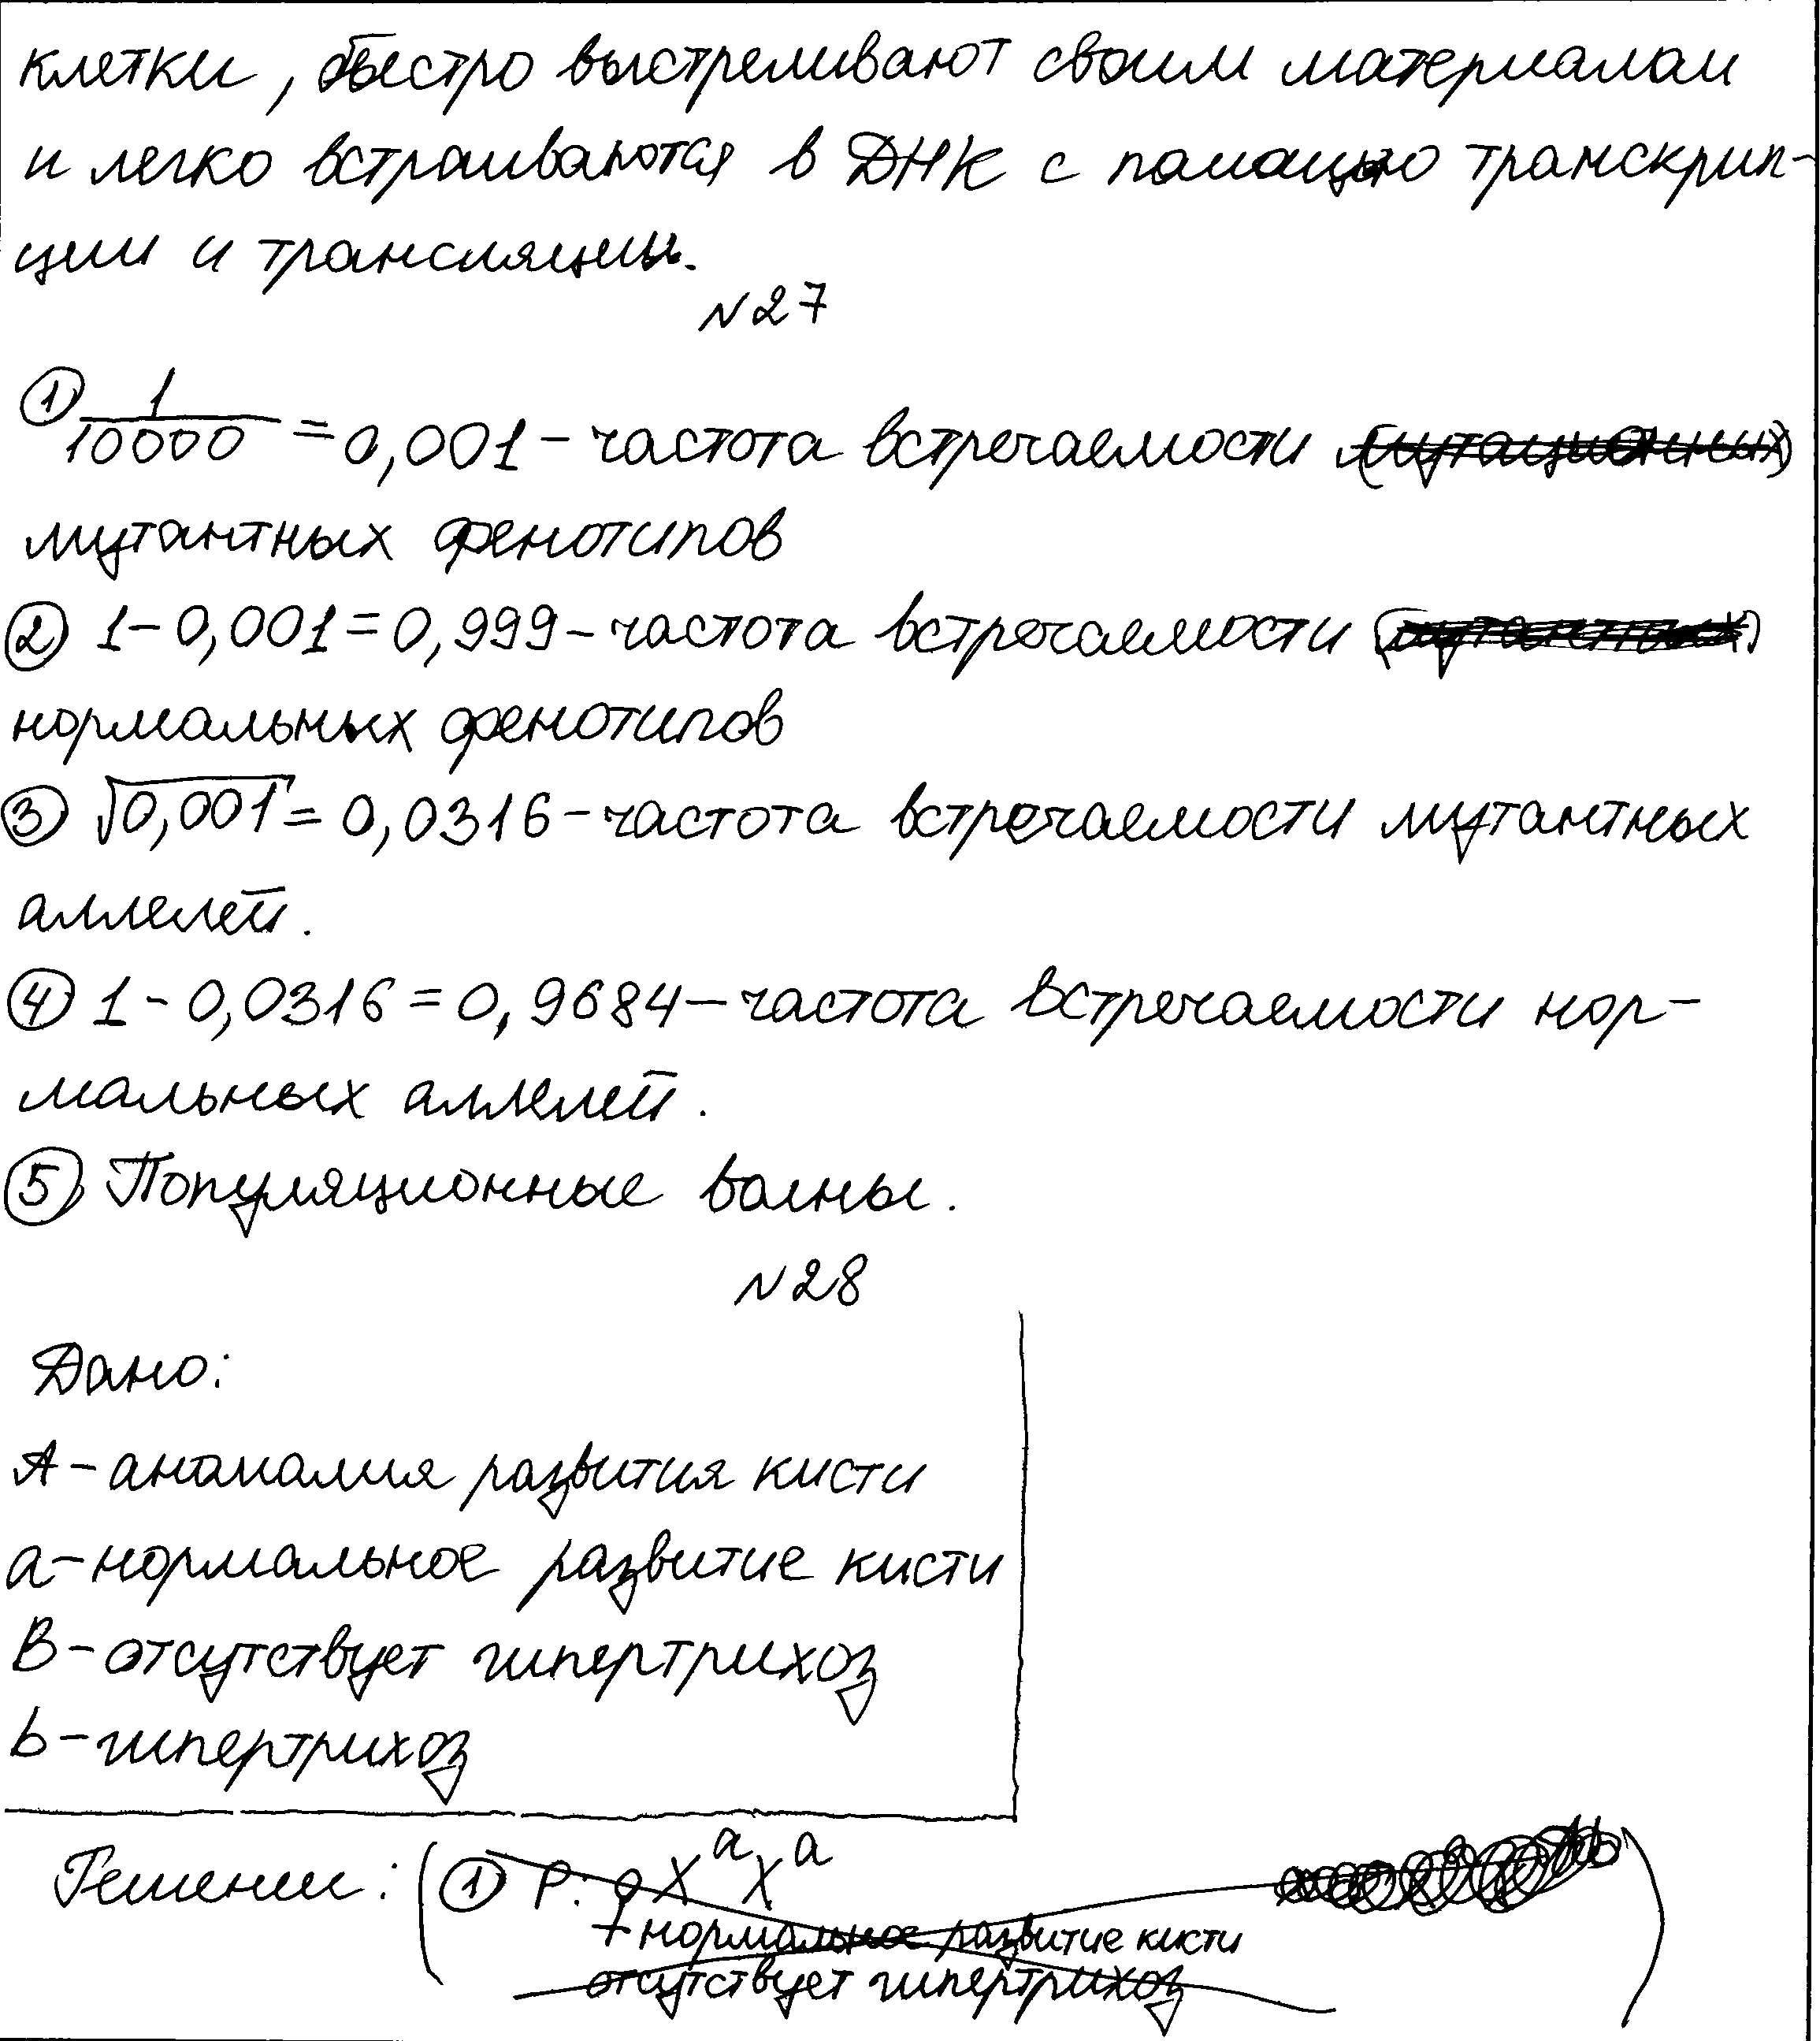 клетки, быстро выстреливают своим материалом
и легко встраиваются в ДНК с помощью транскрип-
ции и трансляции.
№27
① 1/10000 = 0,001 - частота встречаемости (мутационных)
мутантных фенотипов
② 1 - 0,001 = 0,999 - частота встречаемости (мутантных)
нормальных фенотипов
③ √0,001 = 0,0316 - частота встречаемости мутантных
аллелей.
④ 1 - 0,0316 = 0,9684 - частота встречаемости нор-
мальных аллелей.
⑤ Популяционные волны.
№28
Дано:
А - аномалия развития кисти
а - нормальное развитие кисти
В - отсутствует гипертрихоз
b - гипертрихоз
Решение: (① P: ♀ XᵃXᵃ )
нормальное развитие кисти
отсутствует гипертрихоз